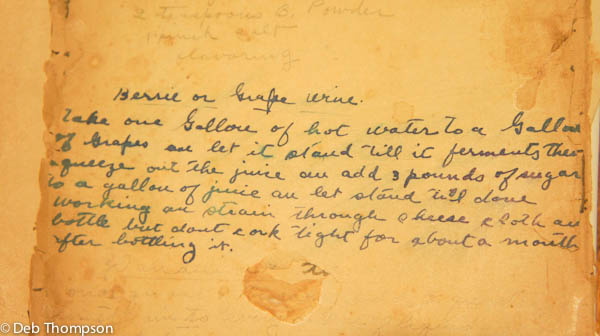 2 teaspoons B. Powder
1 pinch salt
flavoring
Berrie or Grape Wine.
Take one Gallon of hot water to a Gallon
of Grapes an let it stand till it ferments then
squeeze out the juice an add 3 pounds of sugar
to a gallon of juice an let stand till done
working an strain through cheese cloth an
bottle but dont cork tight for about a month
after bottling it.
© Deb Thompson